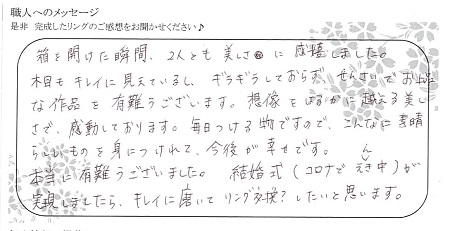 職人へのメッセージ
是非 完成したリングのご感想をお聞かせください♪
箱を開けた瞬間、2人とも美しさに感極しました。
木目もキレイに見えているし、ギラギラしておらず、せんさいでお上品
な作品を有難うございます。想像をはるかに越える美し
さで、感動しております。毎日つける物ですので、こんなに素晴
らしいものを身につけれて、今後が幸せです。
本当に有難うございました。 結婚式(コロナでえんき中)が
実現しましたら、キレイに磨いてリング交換?したいと思います。